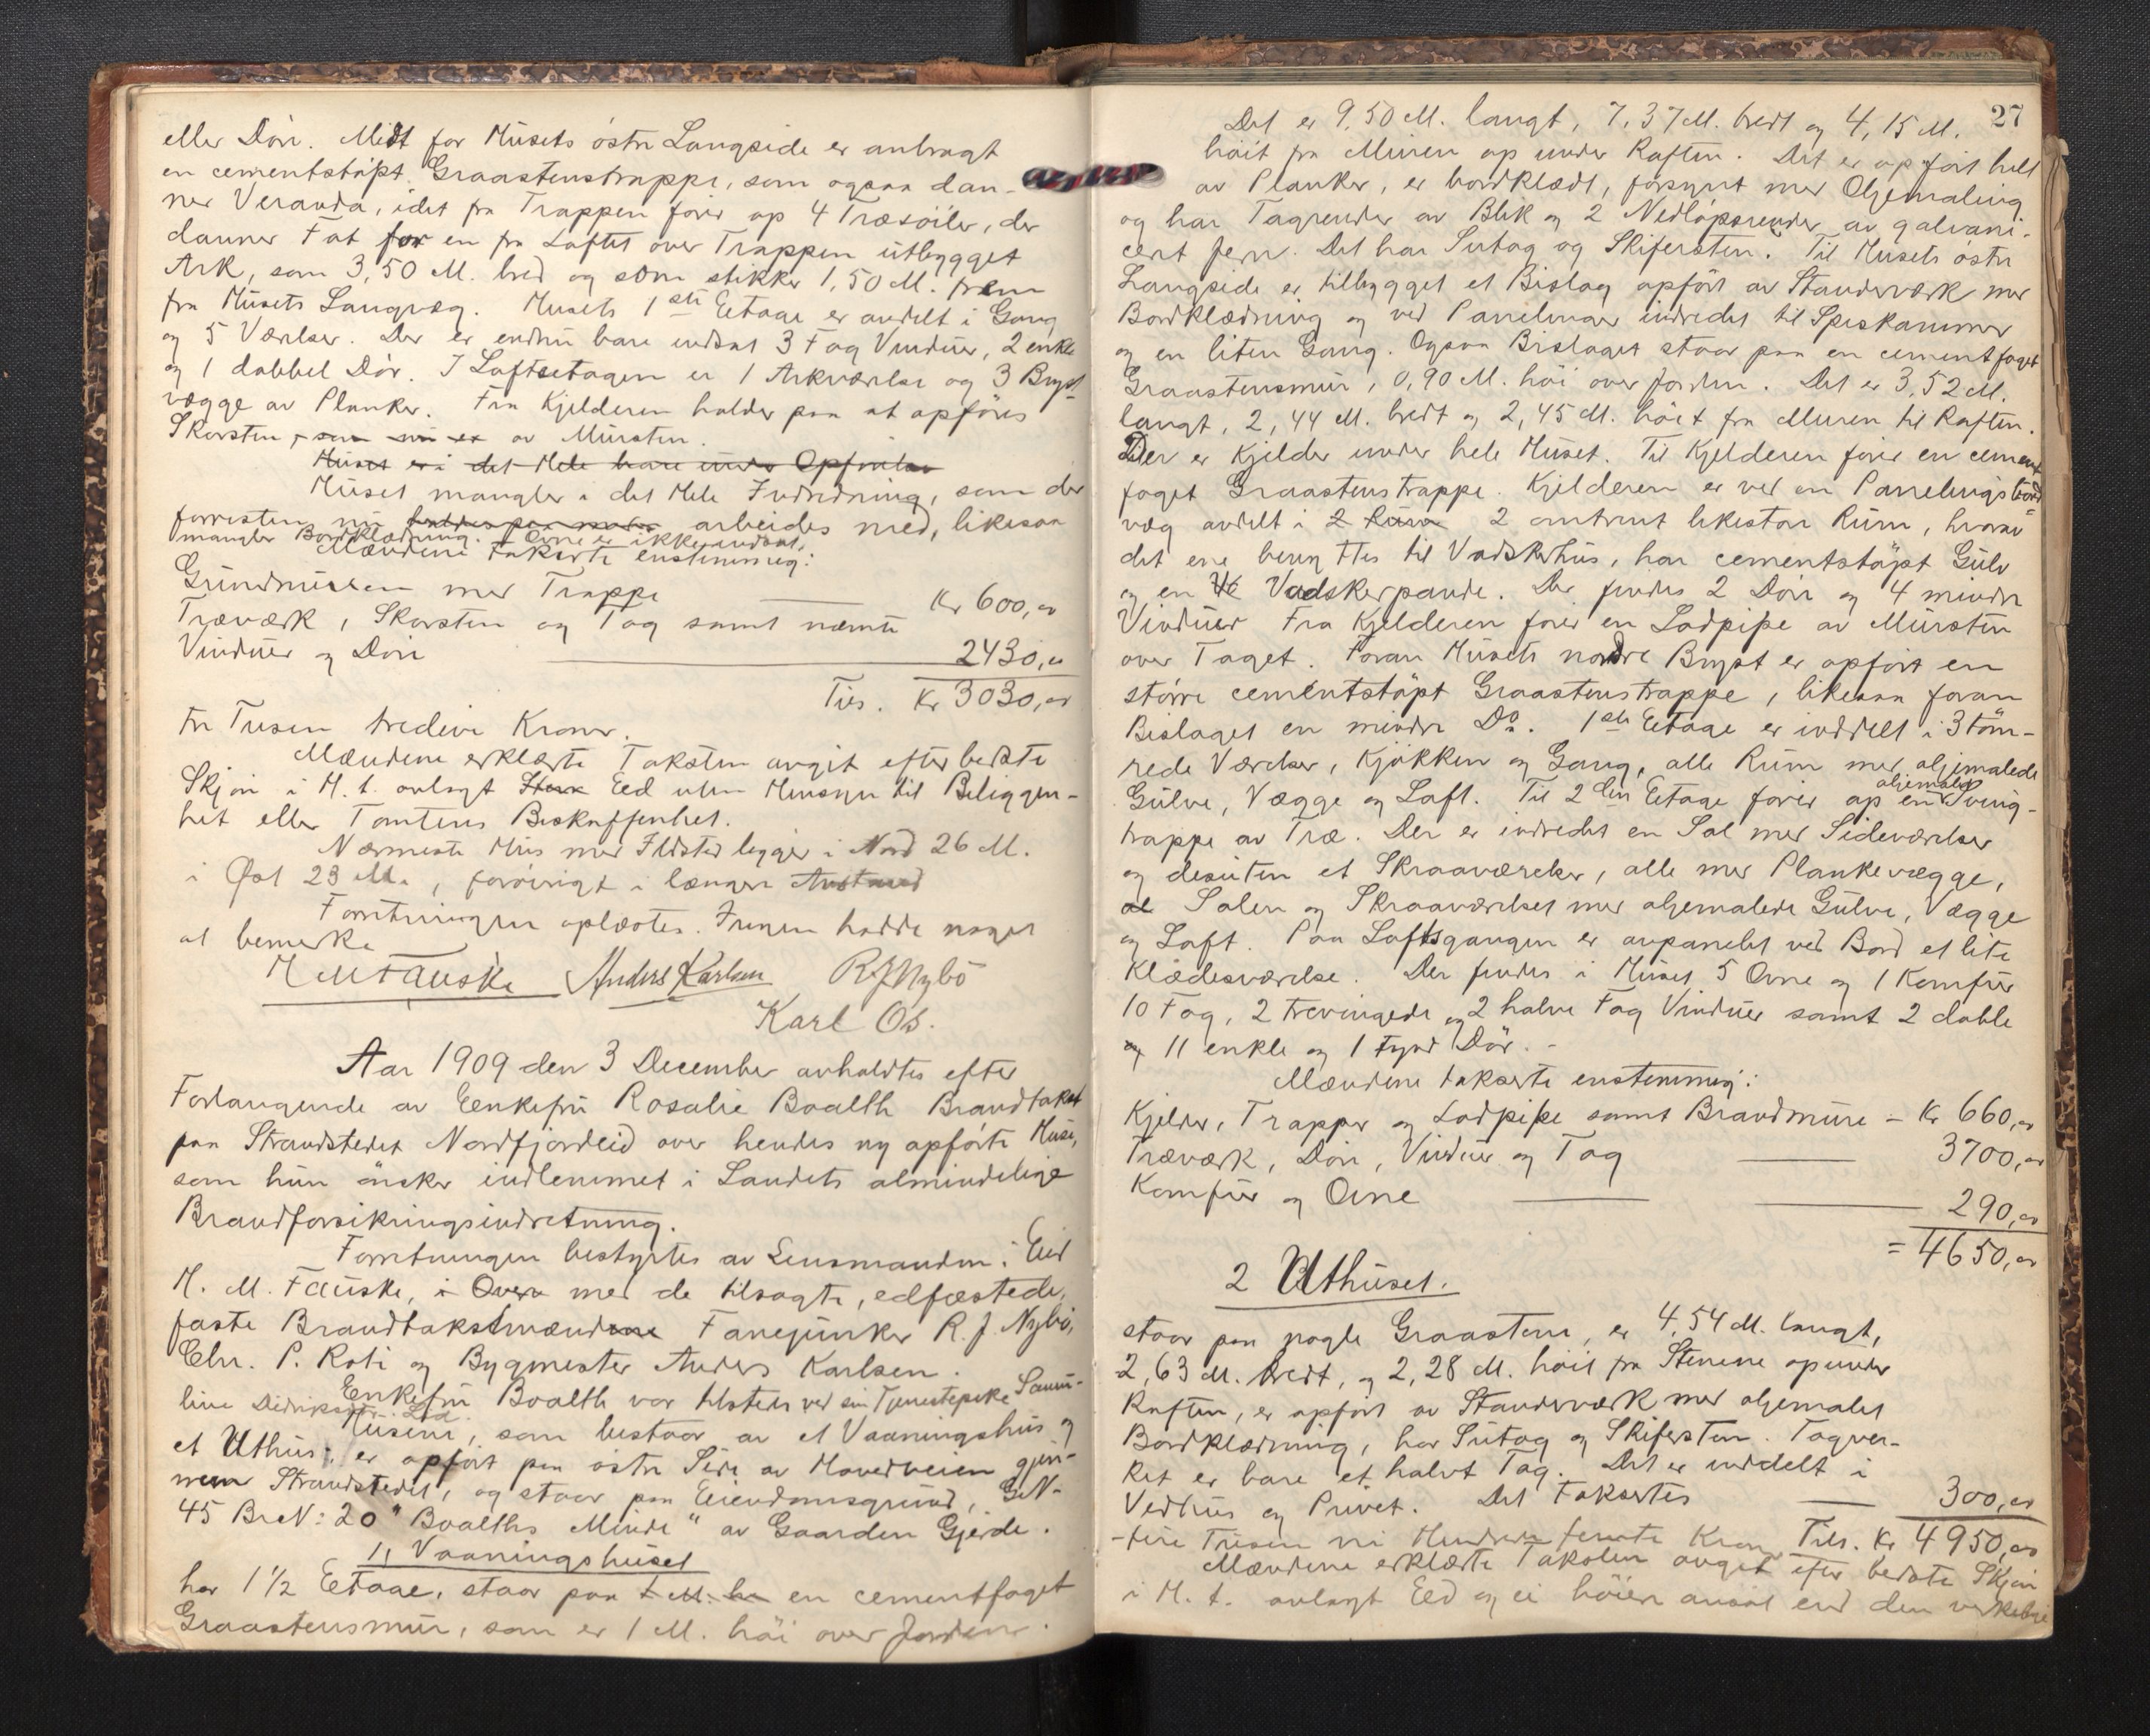 eller Dör. Midt for Husets östre Langside er anbragt
en cementstöpt Graastenstrappe, som ogsaa dan-
ner Veranda, idet fra Trappen förer op 4 Træsöiler, der
danner Fot for en fra Loftet over Trappen utbygget
Ark, som 3,50 M. bred og som stikker 1,50 M. frem
fra Husets Langvæg. Husets 1ste Etage er avdelt i Gang
og 5 Værelser. Der er endnu bare indsat 3 Fag Vinduer, 2 enkle
og 1 dobbel Dör. I Loftsetagen er 1 Arkværelse og 3 Bryst-
vægge av Planker. Fra Kjelderen holder paa at opföres
Skorsten, som nu er av Mursten.
Huset er i det Hele bare under Opförelse
Huset mangler i det Hele Indredning, som der
forresten nu holdes paa med arbeides med, likesaa
mangler Bordklædning. Ovne er ikke indsat.
Mændene takserte enstemmig:
Grundmuren med Trappe Kr 600,00
Træværk, Skorsten og Tag samt nævnte
Vinduer og Döre 2430,00
Tils. Kr 3030,00
tre Tusen tredive Kroner.
Mændene erklærte Taksten avgit efter bedste
Skjön i H. t. avlagt Eed uten Hensyn til Beliggen-
het eller Tomtens Beskaffenhet.
Nærmeste Hus med Ildsted ligger i Nord 26 M.
i Öst 23 M., forövrigt i længere Avstand
Forretningen oplæstes. Ingen hadde noget
at bemerke
H M Fauske Anders Karlsen R J Nybö
Karl Os.
Aar 1909 den 3 December avholdtes efter
Forlangende av Enkefru Rosalie Boalth Brandtakst
paa Strandstedet Nordfjordeid over hendes ny opförte Huse,
som hun önsker indlemmet i Landets almindelige
Brandforsikringsindretning.
Forretningen bestyrtes av Lensmanden i Eid
H. M. Fauske, i Over med de tilsagte, edfæstede,
faste Brandtakstmændene Fanejunker R. J. Nybö,
Chr. P. Roti og Bygmester Anders Karlsen.
Enkefru Boalth var tilstede ved sin Tjenestepike Samu-
line Didriksdtr. Lid.
Husene, som bestaar av et Vaaningshus og
et Uthus, er opfört paa östre Side av Hovedveien gjen-
nem Strandstedet, og staar paa Eiendomsgrund, G.N-
45 Br.N: 20 "Boalths Minde" av Gaarden Gjerde.
1, Vaaningshuset
har 1 1/2 Etage, staar paa 1 M. hö en cementfuget
Graastensmur, som er 1 M. höi over Jorden.
27
Det er 9,50 M. langt, 7,37 M. bredt og 4,15 M.
höit fra Muren op under Raften. Det er opfört helt
av Planker, er bordklædt, forsynt med Oljemaling
og har Tagrender av Blik og 2 Nedlöpsrender av galvani-
cert Jern. Det har Sutag og Skifersten. Til Husets östre
Langside er tilbygget et Bislag opfört av Standerværk med
Bordklædning og ved Panelinger indredet til Spiskammer
og en liten Gang. Ogsaa Bislaget staar paa en cementfuget
Graastensmur, 0,90 M. höi over Jorden. Det er 3,52 M.
langt, 2,44 M. bredt og 2,45 M. höit fra Muren til Raften.
Der er Kjelder under hele Huset. Til Kjelderen förer en cement
fuget Graastenstrappe. Kjelderen er ved en Panelingsbord
væg avdelt i 2 Rum 2 omtrent likestore Rum, hvorav
det ene benyttes til Vadskehus, har cementstöpt Gulv
og en Vadskerpande. Der findes 2 Döre og 4 mindre
Vinduer Fra Kjelderen förer en Lodpipe av Mursten
over Taget. Foran Husets nordre Bryst er opfört en
större cementstöpt Graastenstrappe, likesaa foran
Bislaget en mindre Do. 1ste Etage er inddelt i 3 töm-
rede Værelser, Kjökken og Gang, alle Rum med oljemalede
Gulve, Vægge og Loft. Til 2den Etage förer op en oljemalet Sving-
trappe av Træ. Der er indredet en Sal med Sideværelser
og desuten et Skraaværelse, alle med Plankevægge,
al Salen og Skraaværelset med oljemalede Gulve, Vægge
og Loft. Paa Loftsgangen er avpanelet ved Bord et lite
Klædesværelse. Der findes i Huset 5 Ovne og 1 Komfur
10 Fag, 2 trevingede og 2 halve Fag Vinduer samt 2 doble
og 11 enkle og 1 Dör.
Mændene takserte enstemmig:
Kjelder, Trapper og Lodpipe samt Brandmure - Kr 660,00
Træværk, Döre, Vinduer og Tag 3700,00
Komfur og Ovne 290,00
= 4650,00
2 Uthuset.
staar paa nogle Graastene, er 4,54 M. langt,
2,63 M. bredt, og 2,28 M. höit fra Stenene op under
Raften, er opfört av Standerværk med oljemalet
Bordklædning, har Sutag og Skifersten. Tagver-
ket er bare et halvt Tag. Det er inddelt i
Vedhus og Privet. Det Takseres 300,00
- fire Tusen ni Hundrede femti Kroner Tils. Kr 4950,00
Mændene erklærte Taksten avgit efter bedste Skjön
i H. t. avlagt Eed og ei höiere ansat end den virkelige